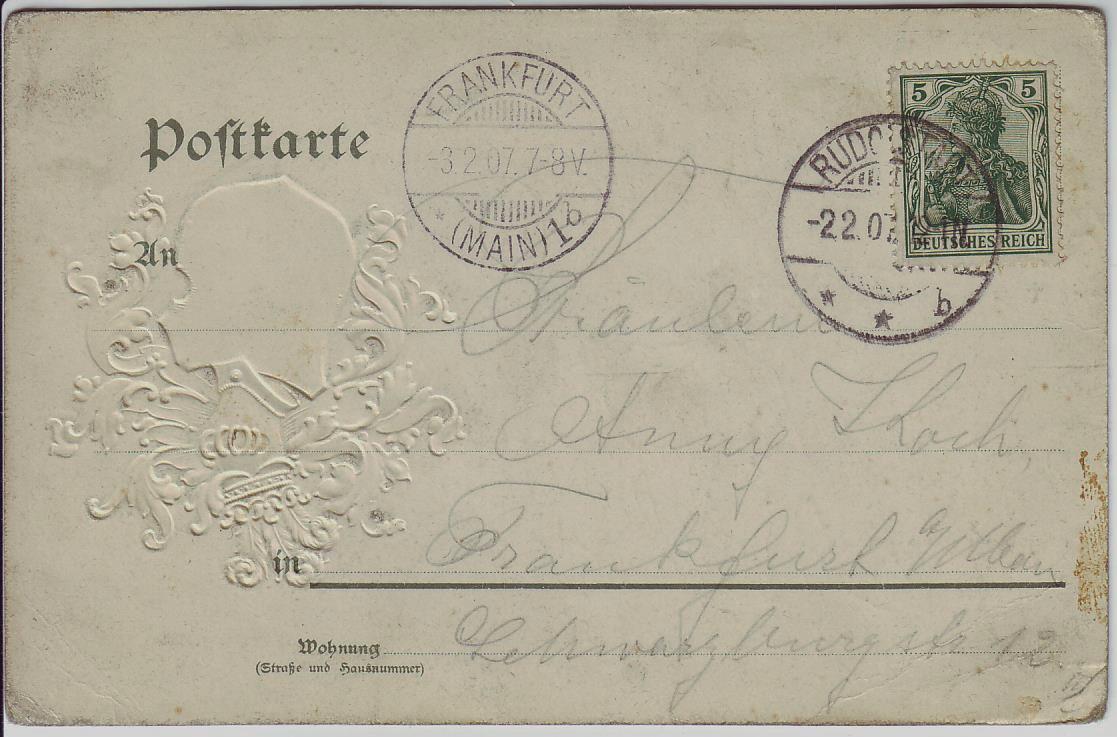 Postkarte
FRANKFURT
-3.2.07.7-8V.
* (MAIN) 1b
5 5
DEUTSCHES REICH
RUDOLSTADT
-2.2.07. N
* * b
An
Fräulein
Anny Koch,
in
Frankfurt a/Main
Wohnung
(Straße und Hausnummer)
Schwarzburgstr 12